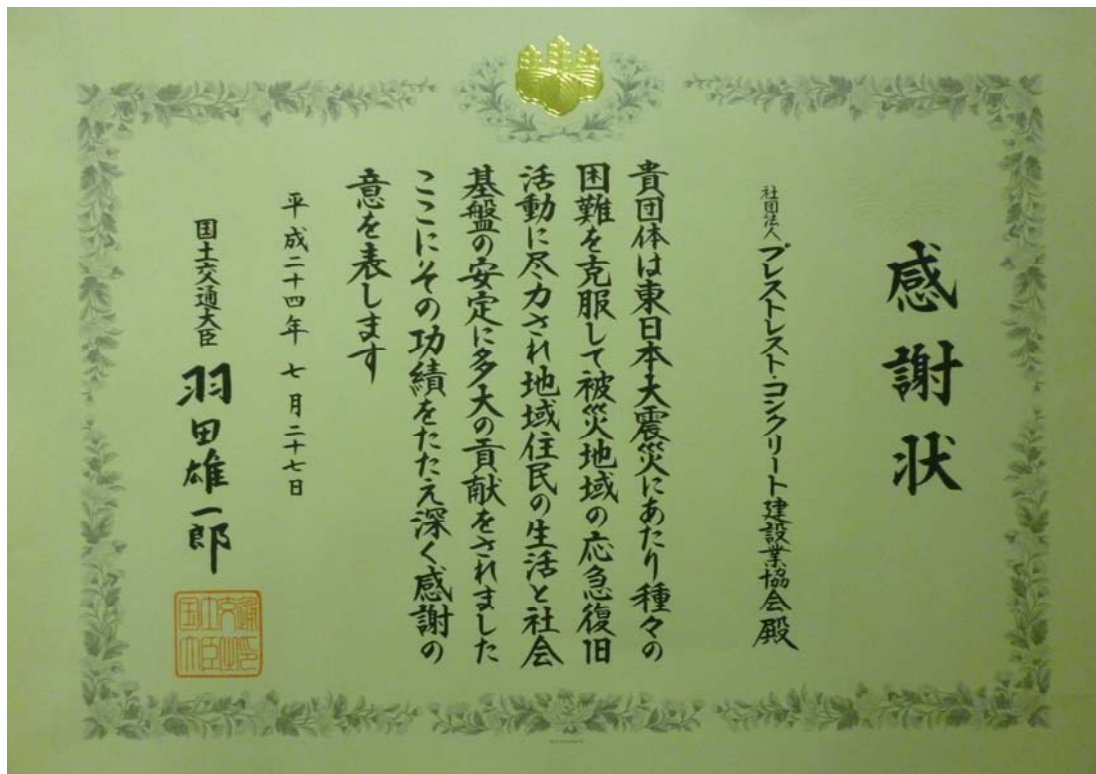 感謝状
社団法人 プレストレスト・コンクリート建設業協会 殿
貴団体は東日本大震災にあたり種々の
困難を克服して被災地域の応急復旧
活動に尽力され地域住民の生活と社会
基盤の安定に多大の貢献をされました
ここにその功績をたたえ深く感謝の
意を表します
平成二十四年 七月二十七日
国土交通大臣 羽田雄一郎